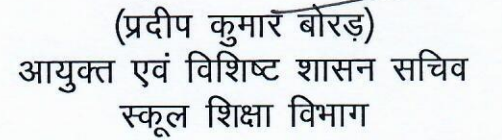 (प्रदीप कुमार बोरड़)
आयुक्त एवं विशिष्ट शासन सचिव
स्कूल शिक्षा विभाग